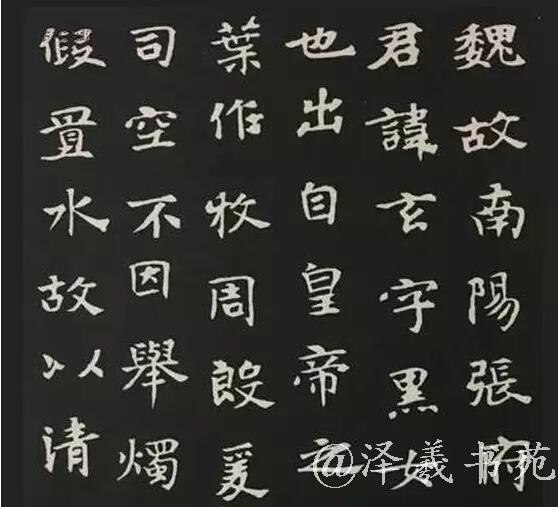 魏故南陽張府
君諱玄字黑女
也出自皇帝之
葉作牧周殷爰
司空不因舉燭
假置水故以清
@泽羲书苑